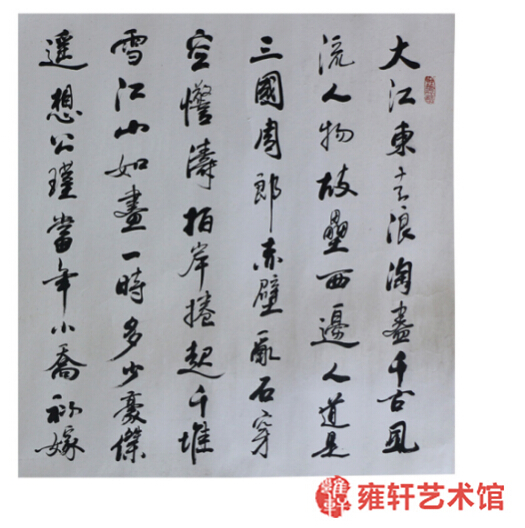 大江東去浪淘盡千古風
流人物故壘西邊人道是
三國周郎赤壁亂石穿
空驚濤拍岸捲起千堆
雪江山如畫一時多少豪傑
遥想公瑾當年小喬初嫁
雍轩艺术馆